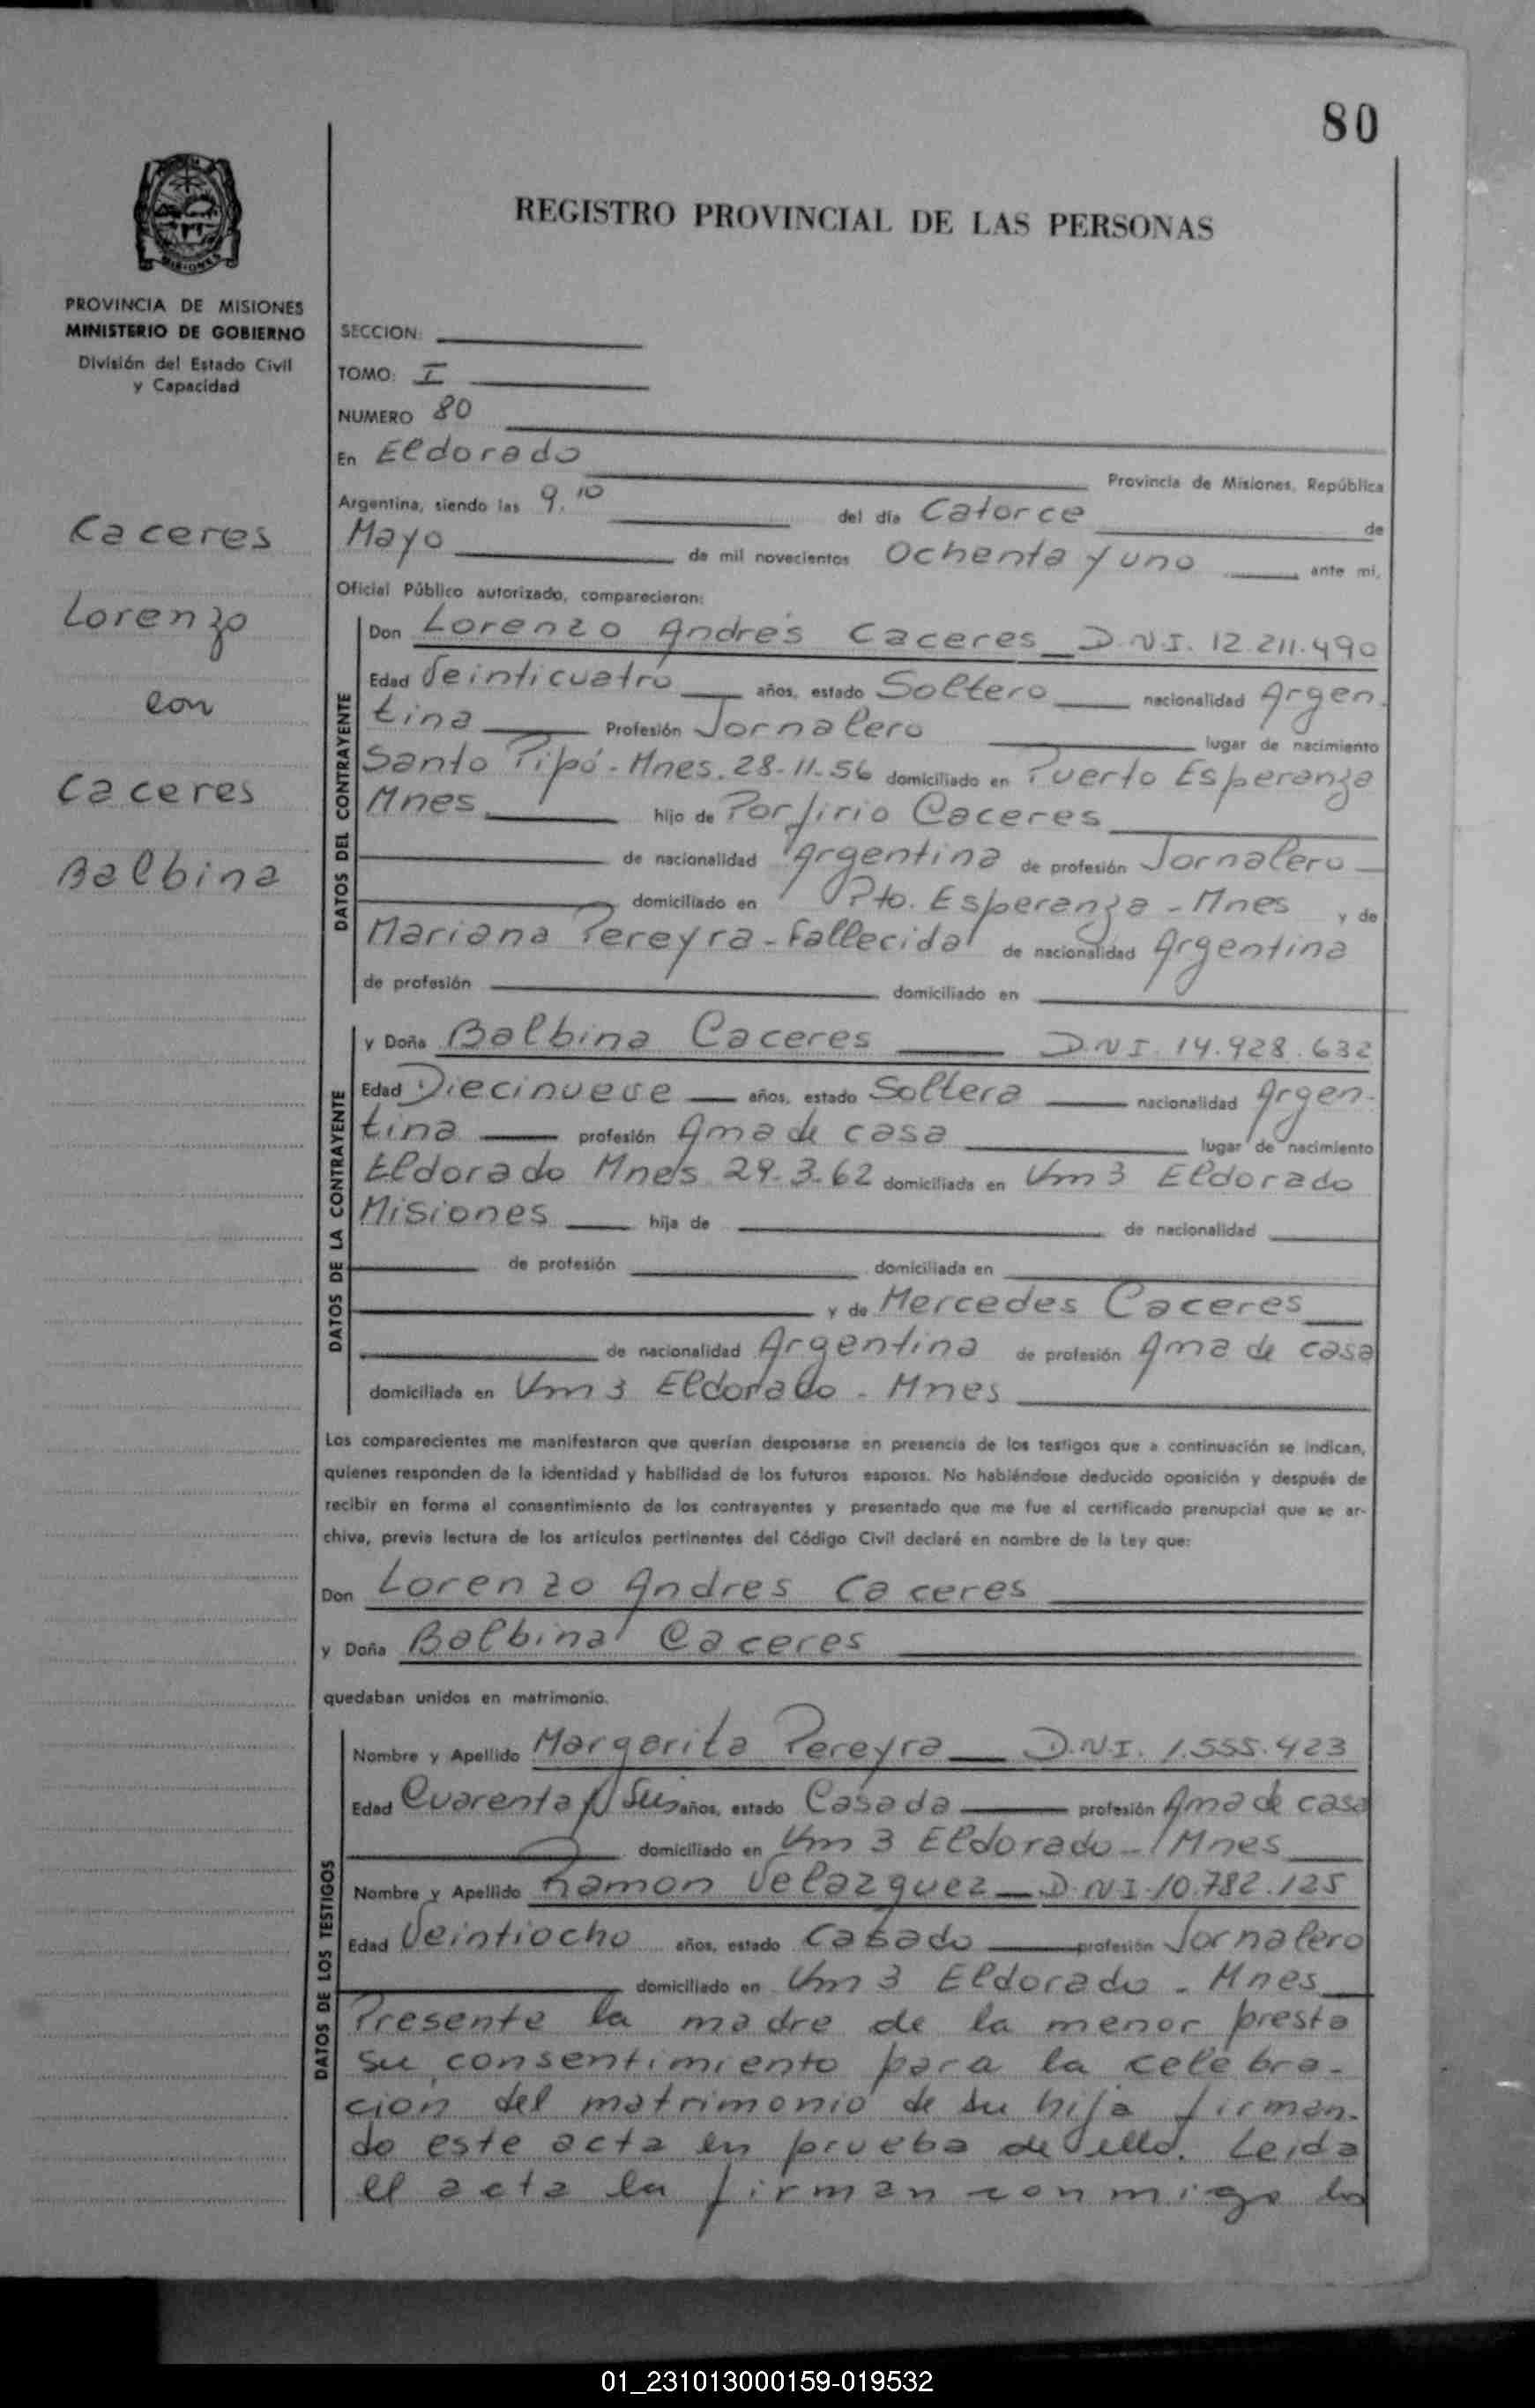 80
REGISTRO PROVINCIAL DE LAS PERSONAS
MISIONES
PROVINCIA DE MISIONES
MINISTERIO DE GOBIERNO
División del Estado Civil
y Capacidad
Caceres
Lorenzo
con
Caceres
Balbina
SECCION:
TOMO: I
NUMERO 80
En Eldorado
Provincia de Misiones, República
Argentina, siendo las 9.10 del día Catorce de
Mayo de mil novecientos Ochenta y uno ante mi,
Oficial Público autorizado, comparecieron:
DATOS DEL CONTRAYENTE
Don Lorenzo Andrés Caceres D.N.I. 12.211.490
Edad Veinticuatro años, estado Soltero nacionalidad Argen-
tina Profesión Jornalero lugar de nacimiento
Santo Pipó - Mnes. 28-11-56 domiciliado en Puerto Esperanza
Mnes hijo de Porfirio Caceres
de nacionalidad Argentina de profesión Jornalero
domiciliado en Pto. Esperanza - Mnes y de
Mariana Pereyra - Fallecida de nacionalidad Argentina
de profesión domiciliado en
DATOS DE LA CONTRAYENTE
y Doña Balbina Caceres D.N.I. 14.928.632
Edad Diecinueve años, estado Soltera nacionalidad Argen-
tina profesión Ama de casa lugar de nacimiento
Eldorado Mnes 29-3-62 domiciliada en Km 3 Eldorado
Misiones hija de de nacionalidad
de profesión domiciliada en
y de Mercedes Caceres
de nacionalidad Argentina de profesión Ama de casa
domiciliada en Km 3 Eldorado - Mnes
Los comparecientes me manifestaron que querían desposarse en presencia de los testigos que a continuación se indican,
quienes responden de la identidad y habilidad de los futuros esposos. No habiéndose deducido oposición y después de
recibir en forma el consentimiento de los contrayentes y presentado que me fue el certificado prenupcial que se ar-
chiva, previa lectura de los artículos pertinentes del Código Civil declaré en nombre de la Ley que:
Don Lorenzo Andres Caceres
y Doña Balbina Caceres
quedaban unidos en matrimonio.
DATOS DE LOS TESTIGOS
Nombre y Apellido Margarita Pereyra D.N.I. 1.555.423
Edad Cuarenta y Seis años, estado Casada profesión Ama de casa
domiciliado en Km 3 Eldorado - Mnes
Nombre y Apellido Ramon Velazquez D.N.I. 10.782.125
Edad Veintiocho años, estado Casado profesión Jornalero
domiciliado en Km 3 Eldorado - Mnes
Presente la madre de la menor presta
su consentimiento para la celebra-
cion del matrimonio de su hija firman-
do este acta en prueba de ello. Leida
el acta la firman conmigo los
01_231013000159-019532